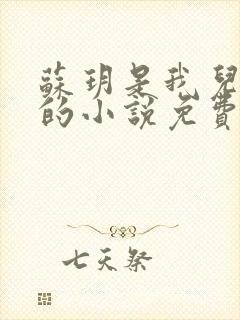 蘇玥是我兒
的小說免費
七天祭